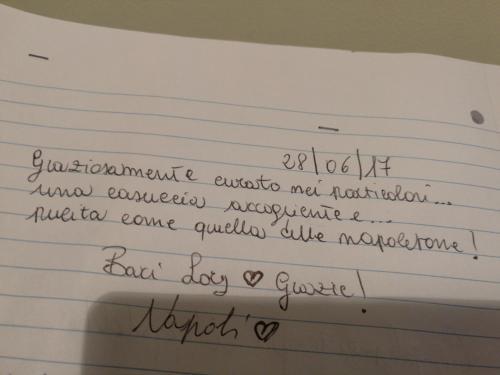 28/06/17
Graziosamente curato nei particolari...
una casuccia accogliente e...
pulita come quella delle napoletane!
Baci Lory ♥ Grazie!
Napoli ♥